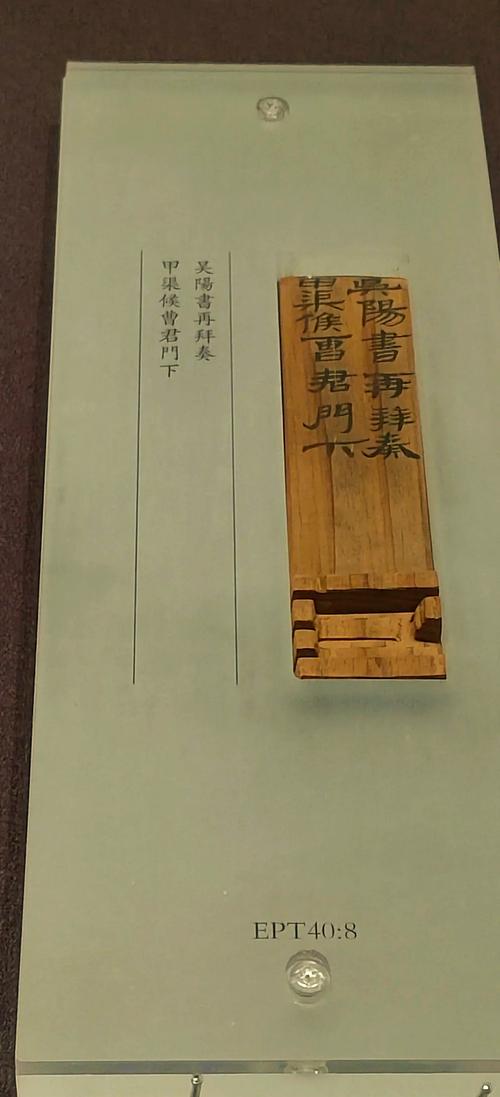 吴陽書再拜奏
甲渠候曹君門下
吳陽書再拜奏
甲渠候曹君門下
EPT40:8